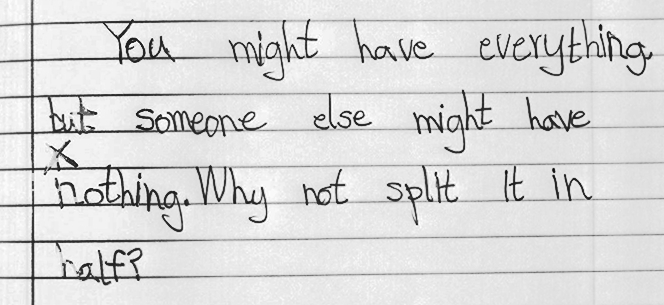 You might have everything
but someone else might have
nothing. Why not split it in
half?